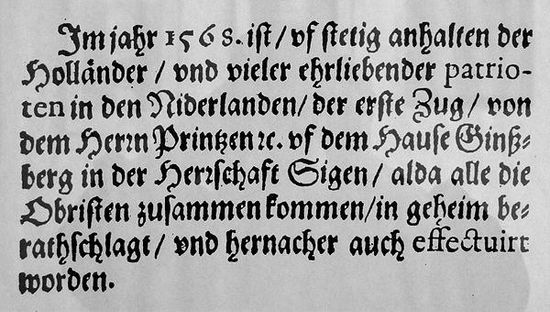 Im jahr 1568. ist/ vf stetig anhalten der
Holländer / vnd vieler ehrliebender patrio-
ten in den Niderlanden/ der erste Zug/ von
dem Herrn Printzen ꝛc. vf dem Hause Ginß⸗
berg in der Herrschaft Sigen/ alda alle die
Obristen zusammen kommen/ in geheim be⸗
rathschlagt/ vnd hernacher auch effectuirt
worden.